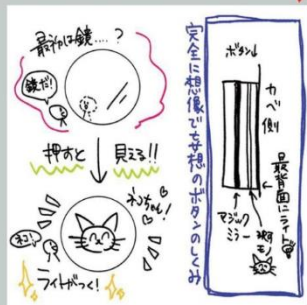 最初は鏡……?
鏡だ!
押すと
見える!!
ネコちゃん!
ネコ!
ライトがつく!
完全に想像で妄想のボタンのしくみ
ボタン↓
カベ側
最背面にライト
マジックミラー
被モノ